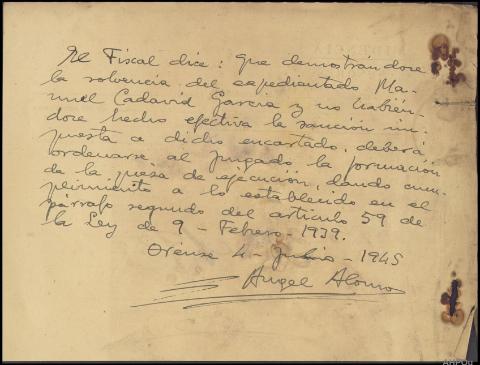 El Fiscal dice: que demostrándose
la solvencia del expedientado Ma-
nuel Cadavid Garcia y no habién-
dose hecho efectiva la sanción im-
puesta a dicho encartado, deberá
ordenarse al juzgado la formación
de la pieza de ejecución, dando cum-
plimiento a lo establecido en el
párrafo segundo del articulo 59 de
la Ley de 9 - Febrero - 1939.
Orense 4 - Julio - 1945
Angel Alonso